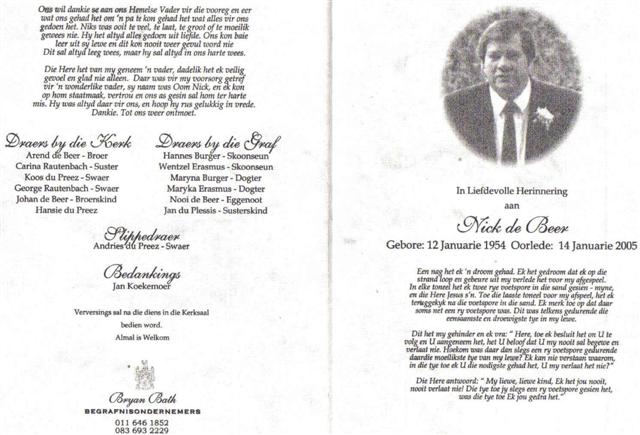 Ons wil dankie se aan ons Hemelse Vader vir die vooreg en eer
wat ons gehad het om 'n pa te kon gehad het wat alles vir ons
gedoen het. Niks was ooit te veel, te laat, te groot of te moeilik
gewees nie. Hy het altyd alles gedoen uit liefde. Ons kon baie
leer uit sy lewe en dit kon nooit weer gevul word nie
Dit sal altyd leeg wees, maar hy sal altyd in ons harte wees.
Die Here het van my geneem 'n vader, dadelik het ek veilig
gevoel en glad nie alleen. Daar was vir my voorsorg getref
vir 'n wonderlike vader, sy naam was Oom Nick, en ek kon
op hom staatmaak, vertrou en ons as gesin sal hom ter harte
mis. Hy was altyd daar vir ons, en hoop hy rus gelukkig in vrede.
Dankie. Tot ons weer ontmoet.
Draers by die Kerk
Arend de Beer - Broer
Carina Rautenbach - Suster
Koos du Preez - Swaer
George Rautenbach - Swaer
Johan de Beer - Broerskind
Hansie du Preez
Draers by die Graf
Hannes Burger - Skoonseun
Wentzel Erasmus - Skoonseun
Maryna Burger - Dogter
Maryka Erasmus - Dogter
Nooi de Beer - Eggenoot
Jan du Plessis - Susterskind
Slippedraer
Andries du Preez - Swaer
Bedankings
Jan Koekemoer
Verversings sal na die diens in die Kerksaal
bedien word.
Almal is Welkom
Bryan Bath
BEGRAFNISONDERNEMERS
011 646 1852
083 693 2229
In Liefdevolle Herinnering
aan
Nick de Beer
Gebore: 12 Januarie 1954 Oorlede: 14 Januarie 2005
Een nag het ek 'n droom gehad. Ek het gedroom dat ek op die
strand loop en gebeure uit my verlede het voor my afgespeel.
In elke toneel het ek twee rye voetspore in die sand gesien - myne,
en die Here Jesus s'n. Toe die laaste toneel voor my afspeel, het ek
teruggekyk na die voetspore in die sand. Ek merk toe op dat daar
soms net een ry voetspore was. Dit was telkens gedurende die
eensaamste en droewigste tye in my lewe.
Dit het my gehinder en ek vra: " Here, toe ek besluit het on U te
volg en U aangeneem het, het U beloof dat U my nooit sal begewe en
verlaat nie. Hoekom was daar dan slegs een ry voetspore gedurende
daardie moeilikste tye van my lewe? Ek kan nie verstaan waarom,
in die tye toe ek U die nodigste gehad het, U my verlaat het nie?"
Die Here antwoord: " My liewe, liewe kind, Ek het jou nooit,
nooit verlaat nie! Die tye toe jy slegs een ry voetspore gesien het,
was die tye toe Ek jou gedra het."